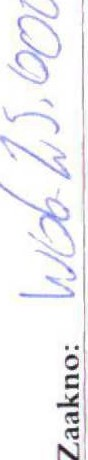 Zaakno: Wob 25.600